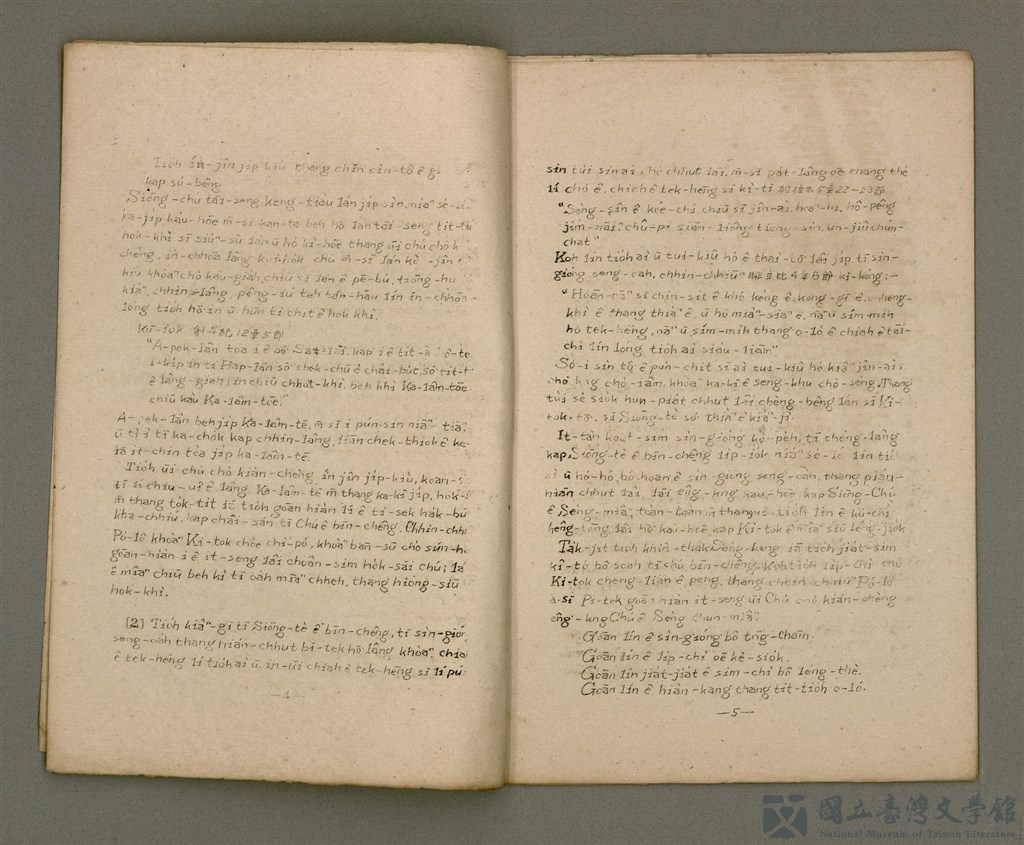 Tio̍h ín-jîn ji̍p kàu thang chīn sìn-tô ê
kap sú-bēng
Siōng-chú tāi-seng keng-tiàu lán ji̍p sin, niâ sè-
ka-ji̍p kàu-hōe m̄-sī kan-ta beh hō͘ lán tāi-seng tit-tio̍h
hok-khì sī siúⁿ-sù lán ū hó ki-hōe thang ūi chú chò kiàn-
chèng, ín-chhōa lâng kui-ho̍k chú m̄-sī lán kè-
hiú khòaⁿ chò kàu-giah, chiū sī lán ê pē-bú, tiōng-hu
kiáⁿ, chhin-lâng, pêng-iú teh hán-hāu lín ín-chhōa
lóng tio̍h hō͘ in ū hūn tī chit ê hok khì.
Kū-iok 創世記 12章5節
"A-pek-lân tòa i ê bó͘ Sat-lâi, kap i ê tit-á
i-ki̍p in tī Hap-lân só͘ chek-chū ê châi-bu̍t, só͘ tit-
ê lâng-giah; in chiū chhut-khì, beh khì Ka-lâm-tōe
chiū kàu Ka-lâm-tōe."
A-pek-lân beh ji̍p Ka-lâm-tē, m̄ sī i pún-sin niā-tiāⁿ
ū tì i tī ka-cho̍k kap chhin-lâng, liân chek-thiok ê
iā it-chīn tòa ji̍p ka-lâm-tē.
Tio̍h ūi chú chò kiàn-chèng ín jîn ji̍p-kàu, koan-
tī lí chiu-ûi ê lâng. Ka-lâm-tē m̄ thang ka-kī ji̍p, hok-
m̄ thang to̍k-tit iā tio̍h goān hiàn lí ê tì-sek ha̍k-bū
kha-chhiú, kap châi-sán tī Chú ê bīn-chêng. Chhin-chhiūⁿ
Pó-lô khòaⁿ Ki-tok chòe chì-pó, khòaⁿ bān-sū chò sún-
goān-hiàn i ê it-seng lâi choân-sim ho̍k-sāi chú;
ê miâ chiū beh kì tī oa̍h miâ chheh, thang hióng-siū
hok-khì.
[2] Tio̍h kiâⁿ-gī tī Siōng-tè ê bīn-chêng, tī sìn-gióng
seng-oa̍h thang hián-chhut bí-tek hō͘ lâng khòaⁿ, chiah
ê tek-hēng lí tio̍h ài ū, in-ūi chiah ê tek-hēng sī lí pún
—4—
sin tùi sin ai chò chhut lâi, m̄-sī pa̍t-lâng oē thang thè
lí chò ê, chiah ê tek-hēng sī kì-tī 加拉太5章22-23節
"Sèng-sîn ê kóe-chí, chiū sī jîn-ài, hoaⁿ-hí, hô-pêng
jím-nāi, chû-pi siān-liông, tiong-sìn, un-jiû chún-
chat"
Koh lín tio̍h ài ū tui-kiû hó ê thāi-tō͘ lâi ji̍p tī sìn-
gióng seng-oa̍h, chhin-chhiūⁿ 腓立比4章8節 kì-kóng:—
"Hoān-nā sī chin-si̍t ê khó kèng ê, kong-gī ê, chheng-
khì ê thang thiàⁿ ê, ū hó miâ-siaⁿ ê, nā ū sím-mih
hó tek-hēng, nā ū sím-mih thang o-ló ê chiah ê tāi-
chì lín lóng tio̍h ài siàu-liām"
Só͘-í sìn tô͘ ê pún-chit sī ài tui-kiû hó kiâⁿ jîn-ài
chò iâg chò-iâm, khòaⁿ ka-kī ê seng-khu chò-sèng. Thang
tùi sè sio̍k hun-pia̍t chhut lâi chèng-bêng lán sī Ki-
tok-tô͘, sī Siōng-tè só͘ thiàⁿ ê kiáⁿ-jî.
It-tàn koat-sim sìn-gióng kò-pe̍h, tī chèng-lâng
kap Siōng-tè ê bīn-chêng li̍p-iok niâ sè-lé lín tio̍h
ài ū hó-hó, bô-hoân ê sìn-gióng seng-oa̍h, thang piáu-
hiān chhut lâi, lâi êng-kng kàu-hōe kap Siōng-Chú
ê Sèng-miâ; tuān-toān m̄ thang ūi-tio̍h lín ê kú-chí
hêng-tōng, lâi hō͘ kàu-hōe kap Ki-tok ê miâ siū lêng-jio̍k
Ta̍k-ji̍t tio̍h khîn-tha̍k Sèng-keng iā tio̍h jia̍t-sim
kî-tó, bô soah tī chú bīn-chêng, Koh tio̍h li̍p-chì chò
Ki-tok cheng-liān ê peng, thang chhin chhiūⁿ Pó-lô
á-sī Pí-tek goān hiàn it-seng ūi Chú chò kiàn-chèng
êng-kng Chú ê Sèng Chun-miâ.
Goān lín ê sìn-gióng bô tńg-choán.
Goān lín ê li̍p-chì oē kè-sio̍k.
Goān lín jia̍t-jia̍t ê sim-chì bô léng-thè.
Goān lín ê hiàn-kang thang tit-tio̍h o-ló.
—5—
國立臺灣文學館
National Museum of Taiwan Literature